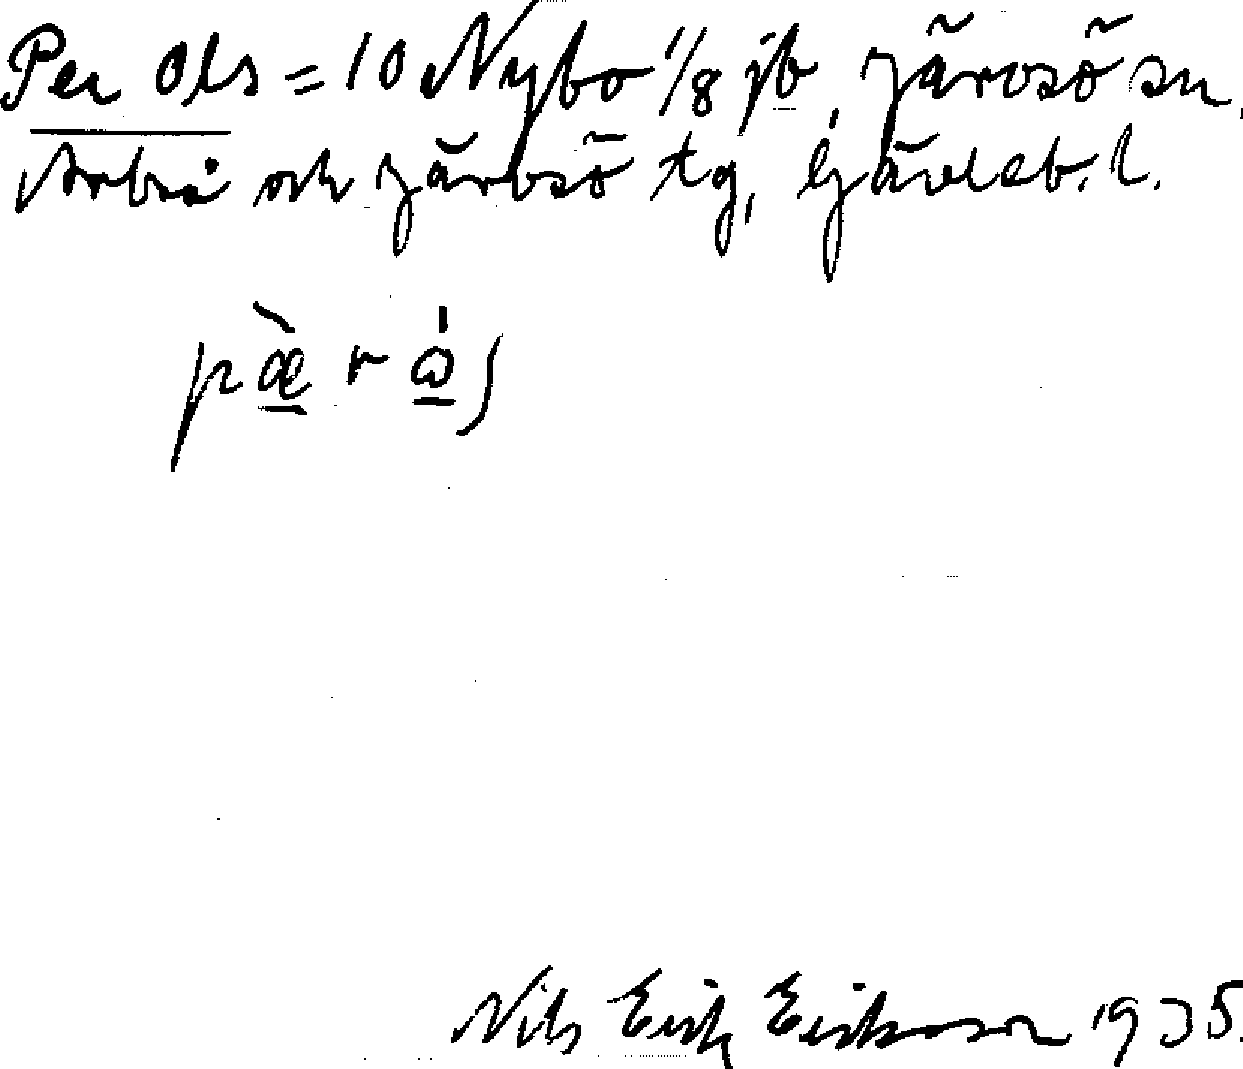 Per Ols = 10 Nybo 1/8 jb, Järvsö sn,
Arbrå och Järvsö tg, Gävleb. l.
pæ̀r ω̍ʃ
Nils Erik Eriksson 1935.